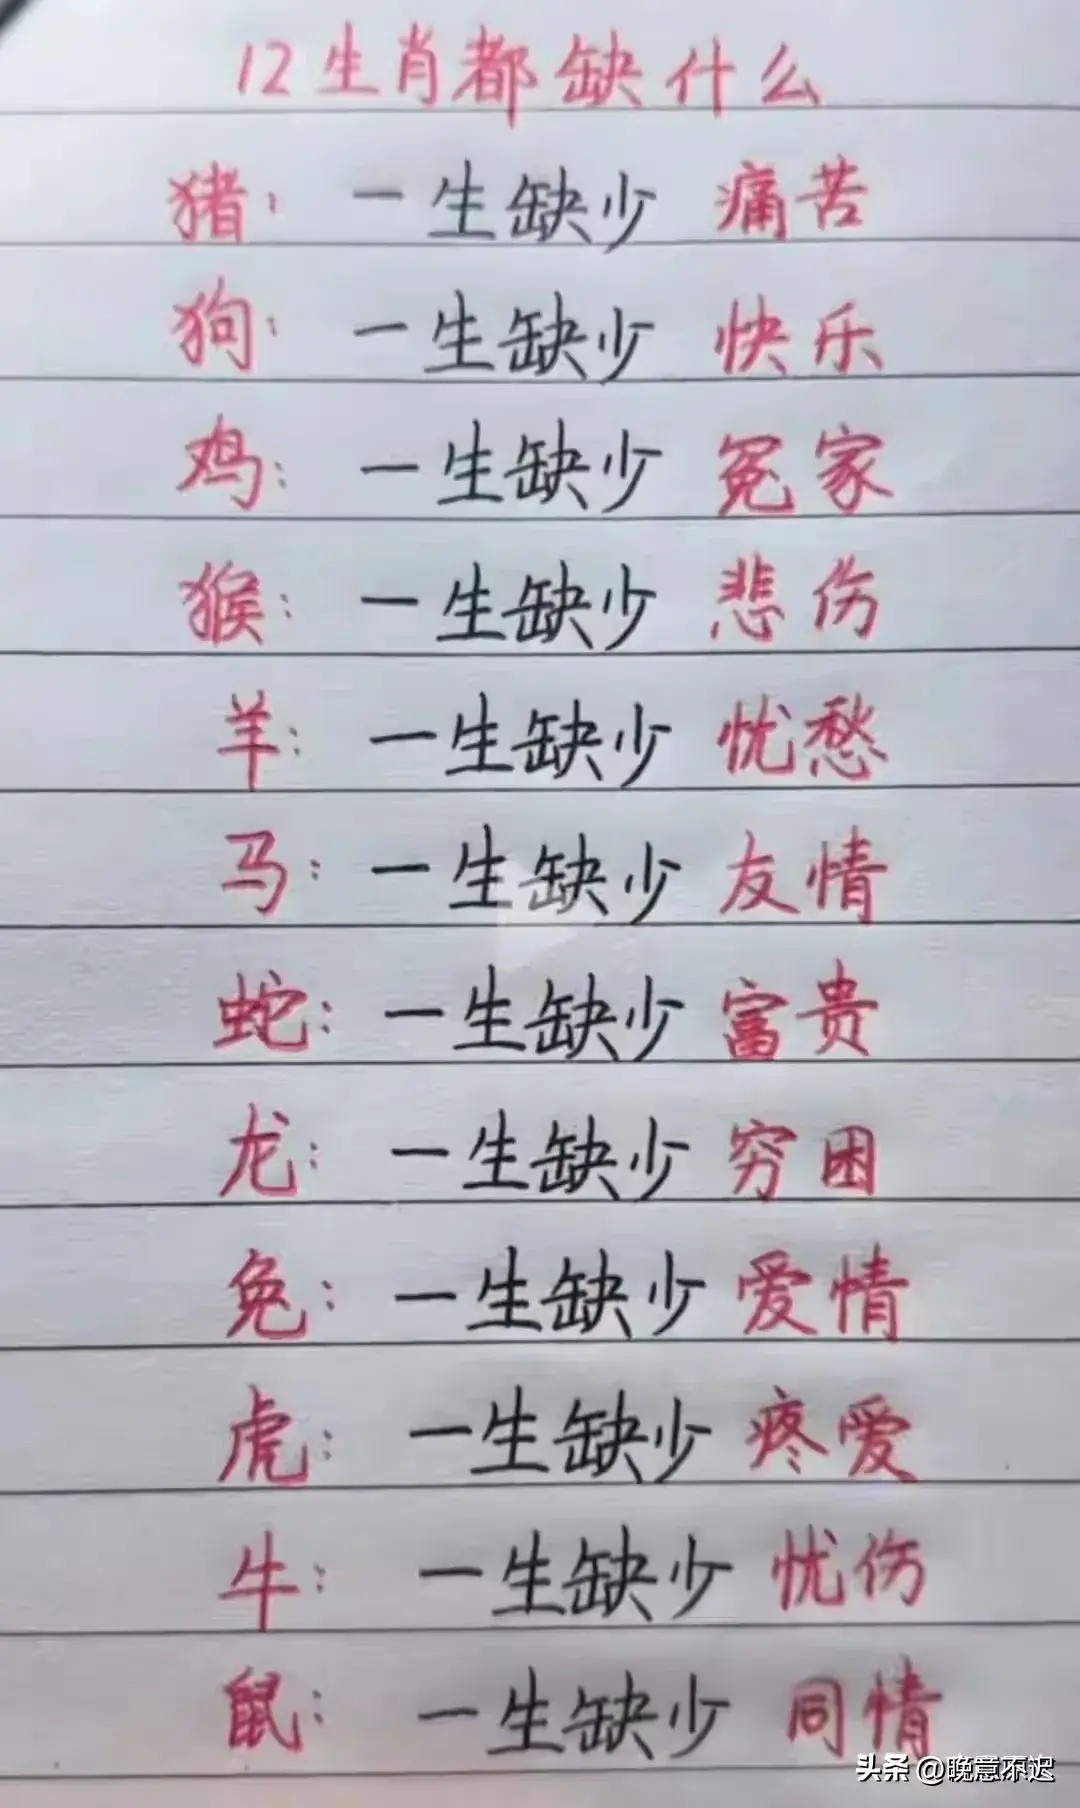 12生肖都缺什么
猪：一生缺少 痛苦
狗：一生缺少 快乐
鸡：一生缺少 冤家
猴：一生缺少 悲伤
羊：一生缺少 忧愁
马：一生缺少 友情
蛇：一生缺少 富贵
龙：一生缺少 穷困
兔：一生缺少 爱情
虎：一生缺少 疼爱
牛：一生缺少 忧伤
鼠：一生缺少 同情
头条 @晚意不迟